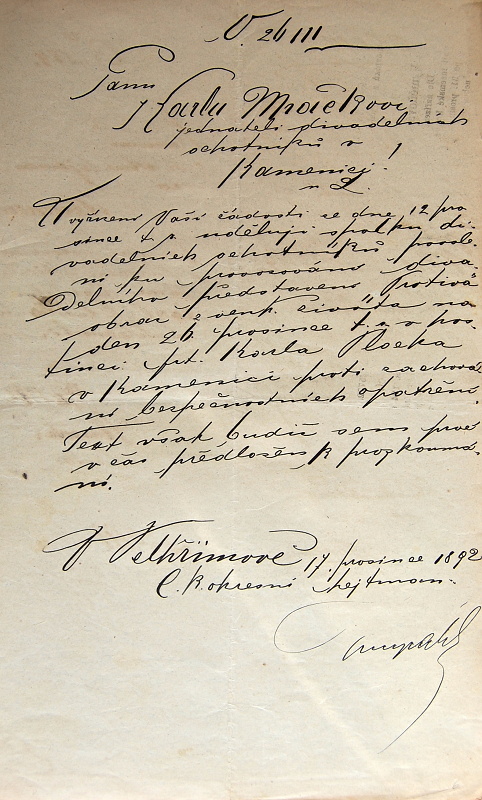 Panu
Karlu Mráčkovi
jednateli divadelních
ochotníků v
Kamenici!
n. L.
K vyřízení Vaší žádosti ze dne 12 pro-
since t. r. uděluji spolku di-
vadelních ochotníků povole-
ní ku provozování diva-
delního představení
obraz z venk. života na
den 26. prosince t. r. v hos-
tinci pt. Karla
v Kamenici proti zachová
ní bezpečnostních opatření.
Text však budiž sem
v čas předložen k prozkoumá-
ní.
V Pelhřimově 17. prosince 1892
C. k. okresní hejtman.